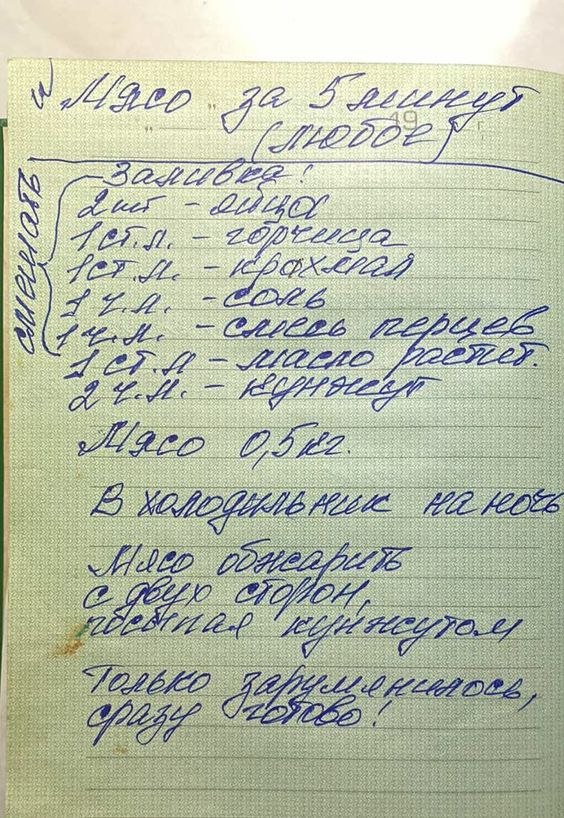 и Мясо за 5 минут
19 г
(любое)
Заливка:
смешать
2 шт - яйца
1 ст.л. - горчица
1 ст.л. - крахмал
1 ч.л. - соль
1 ч.л. - смесь перцев
1 ст.л - масло растит.
2 ч.л. - кунжут
Мясо 0,5 кг.
В холодильник на ночь
Мясо обжарить
с двух сторон,
посыпая кунжутом
Только зарумянилось,
сразу готово!